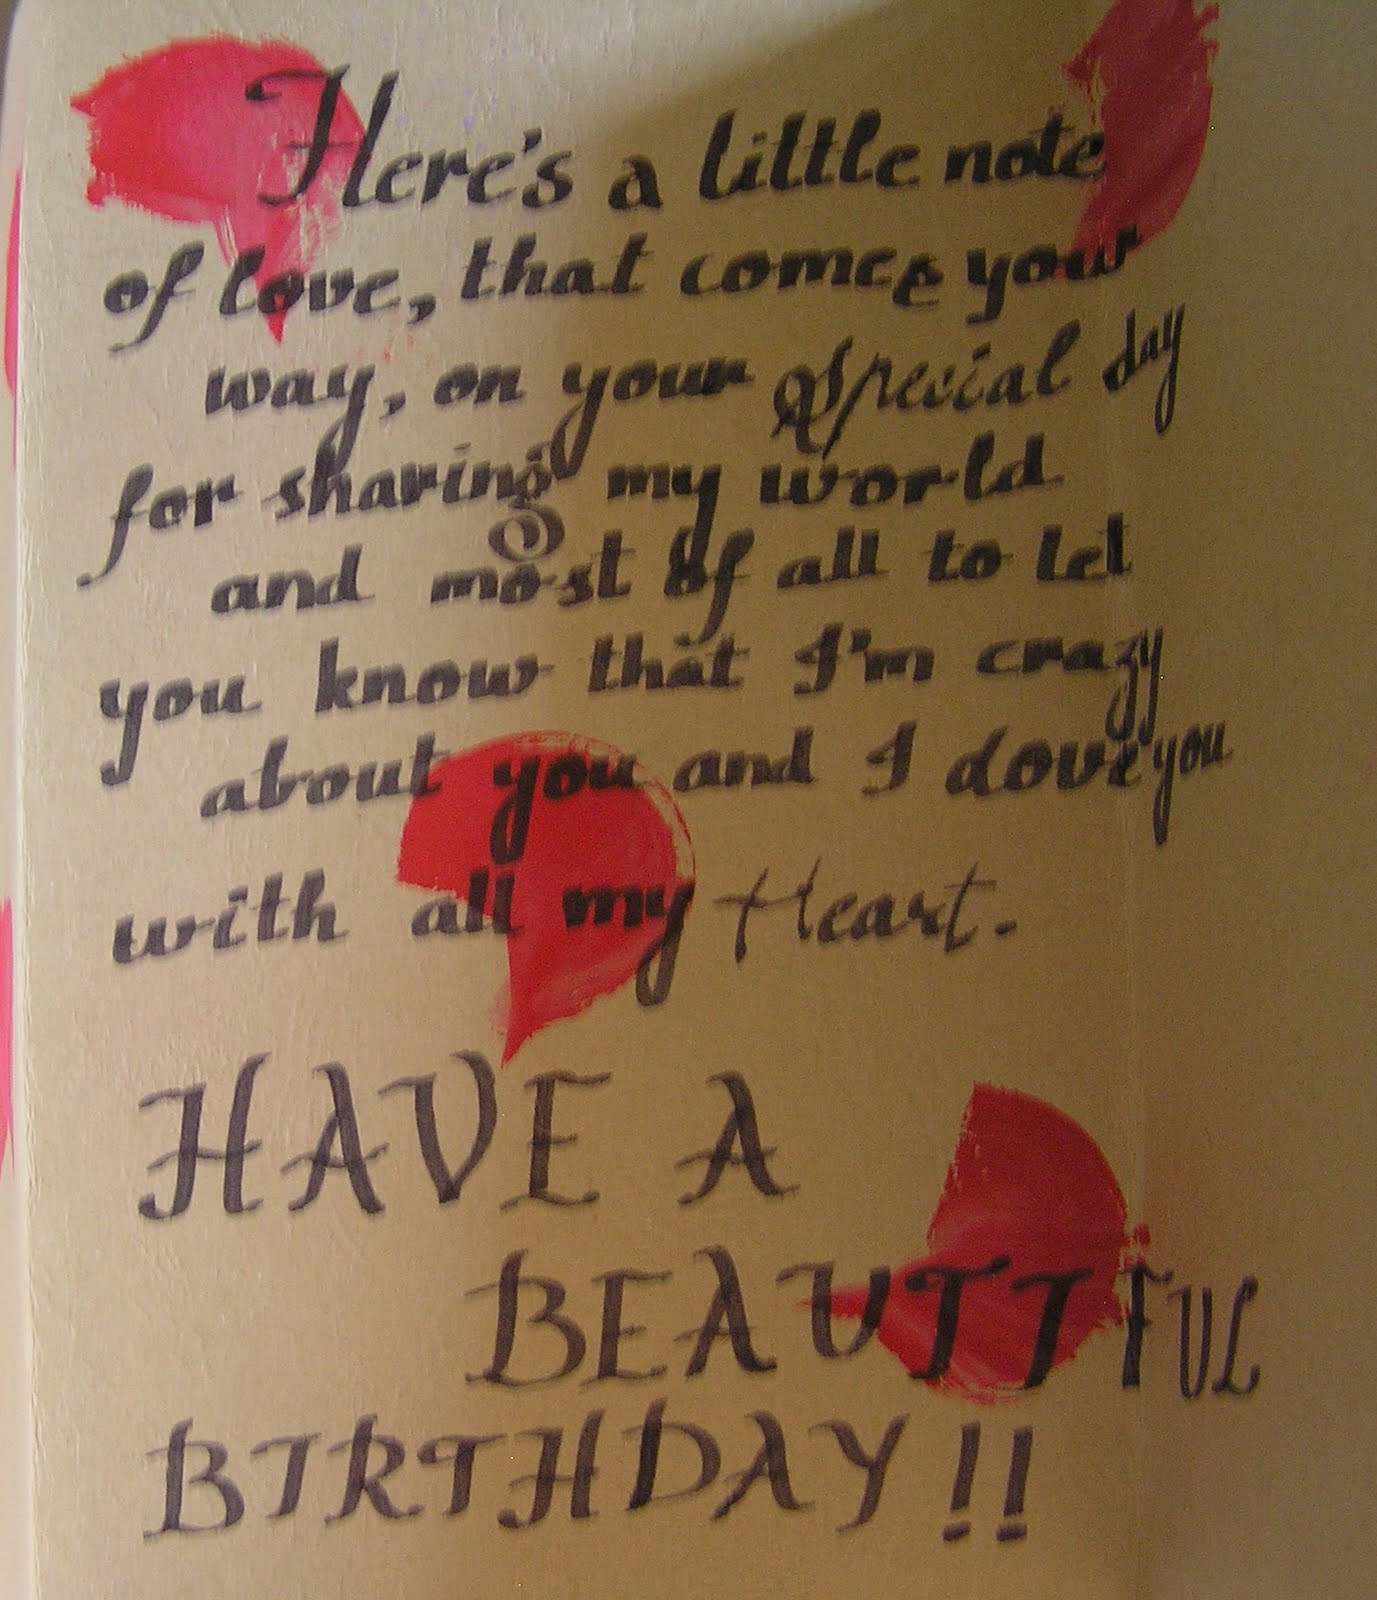 Here's a little note
of love, that comes your
way, on your Special day
for sharing my world
and most of all to let
you know that I'm crazy
about you and I dove you
with all my Heart.
HAVE A
BEAUTIFUL
BIRTHDAY!!